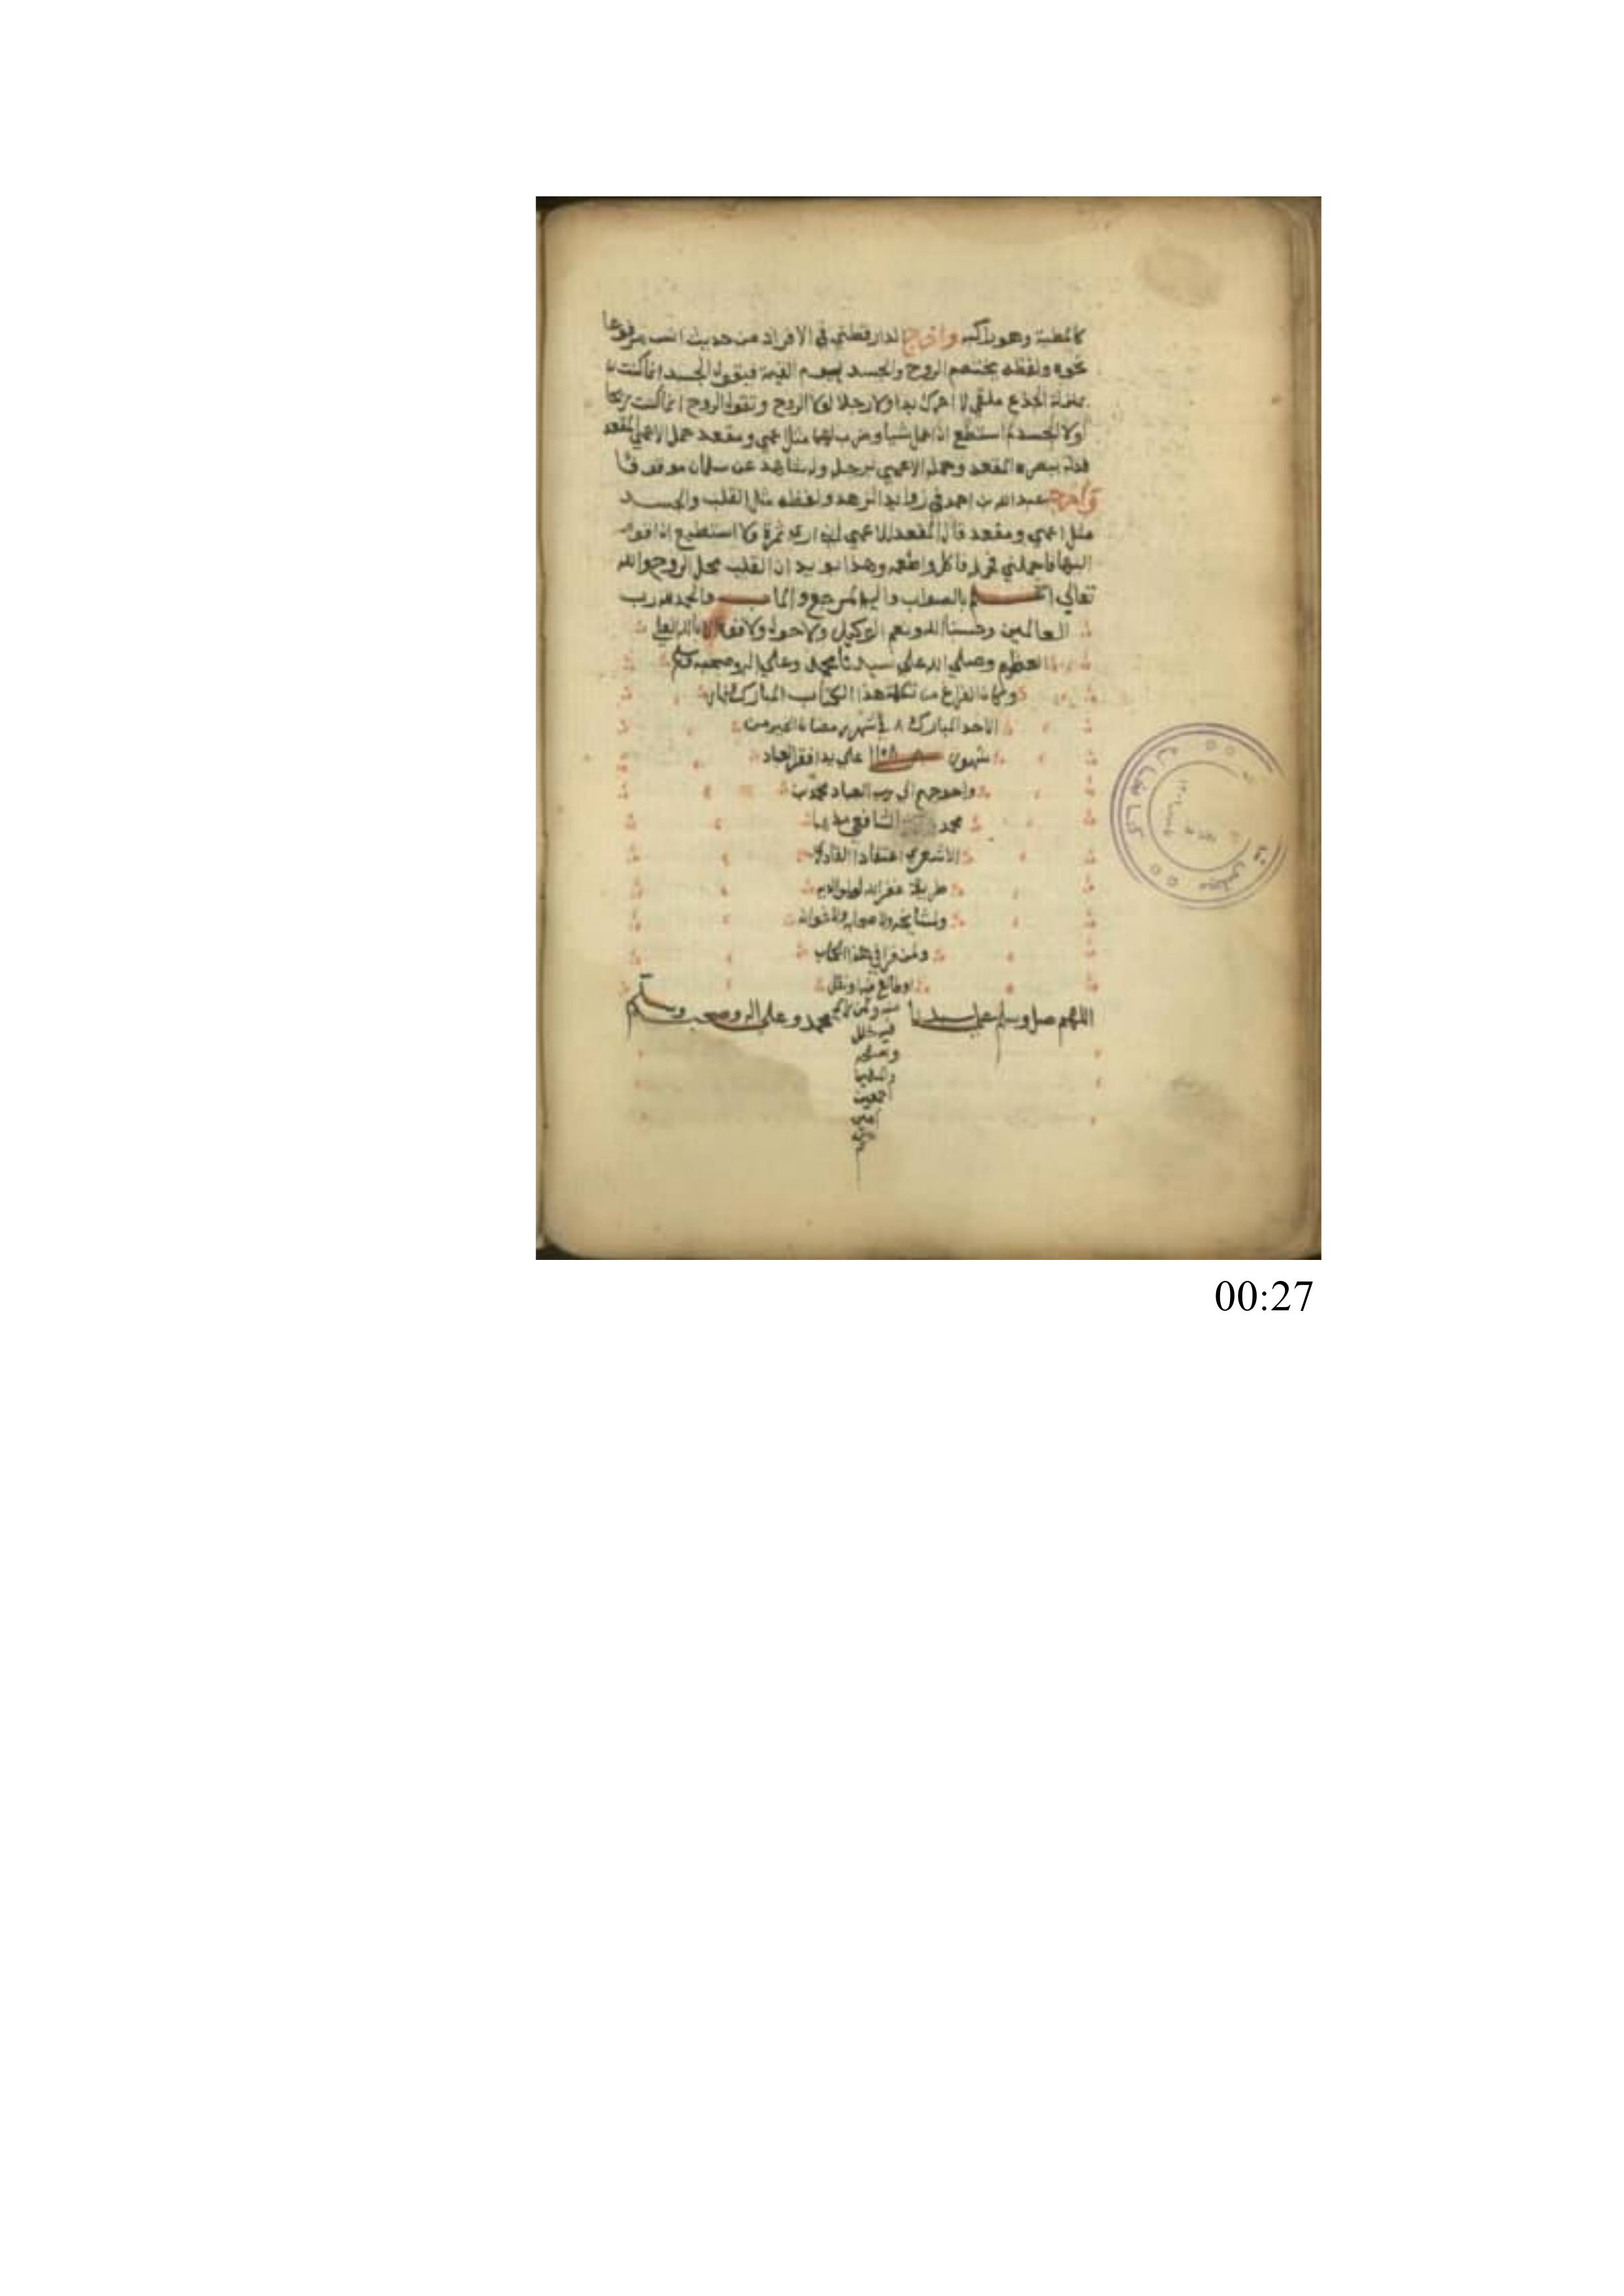 كالمطية وهو راكب واخرج الدارقطني في الافراد من حديث انس مرفوعا
نحوه ولفظه يختصم الروح والجسد يوم القيمة فيقول الجسد انما كنت
بمنزلة الجذع ملقي لا احرك يدا ولا رجلا لولا الروح وتقول الروح انما كنت ريحا
لولا الجسد لم استطع ان اعمل شيا وضرب لهما مثل اعمي ومقعد حمل الاعمي المقعد
فدله ببصره المقعد وحمله الاعمي برجله وله شاهد عن سلمان موقوفا
واخرج عبد الله بن احمد في زوايد الزهد ولفظه مثل القلب والجسد
مثل اعمي ومقعد قال المقعد للاعمي اني اري ثمرة ولا استطيع ان اقوم
اليها فاحملني فحمله فاكل واطعمه وهذا يويد ان القلب محل الروح والله
تعالي اعلم بالصواب واليه المرجع والماب والحمد لله رب
العالمين وحسبنا الله ونعم الوكيل ولا حول ولا قوة الا بالله العلي
العظيم وصلي الله علي سيدنا محمد وعلي اله وصحبه وسلم
وكان الفراغ من تكملة هذا الكتاب المبارك نهار
الاحد المبارك ٨ في شهر رمضان الذي من
شهور سنة ١١٥٨ علي يد افقر العباد
واحوجهم الي رب العباد محمد بن
محمد الشافعي مذهبا
الاشعري اعتقادا القادري
طريقة غفر الله له ولوالديه
ولمشايخه ولاخوانه
ولمن قرا في هذا الكتاب
او طالع فيه ونقل
منه ولمن
اللهم صل وسلم علي سيدنا محمد وعلي اله وصحبه وسلم
فيه خلل